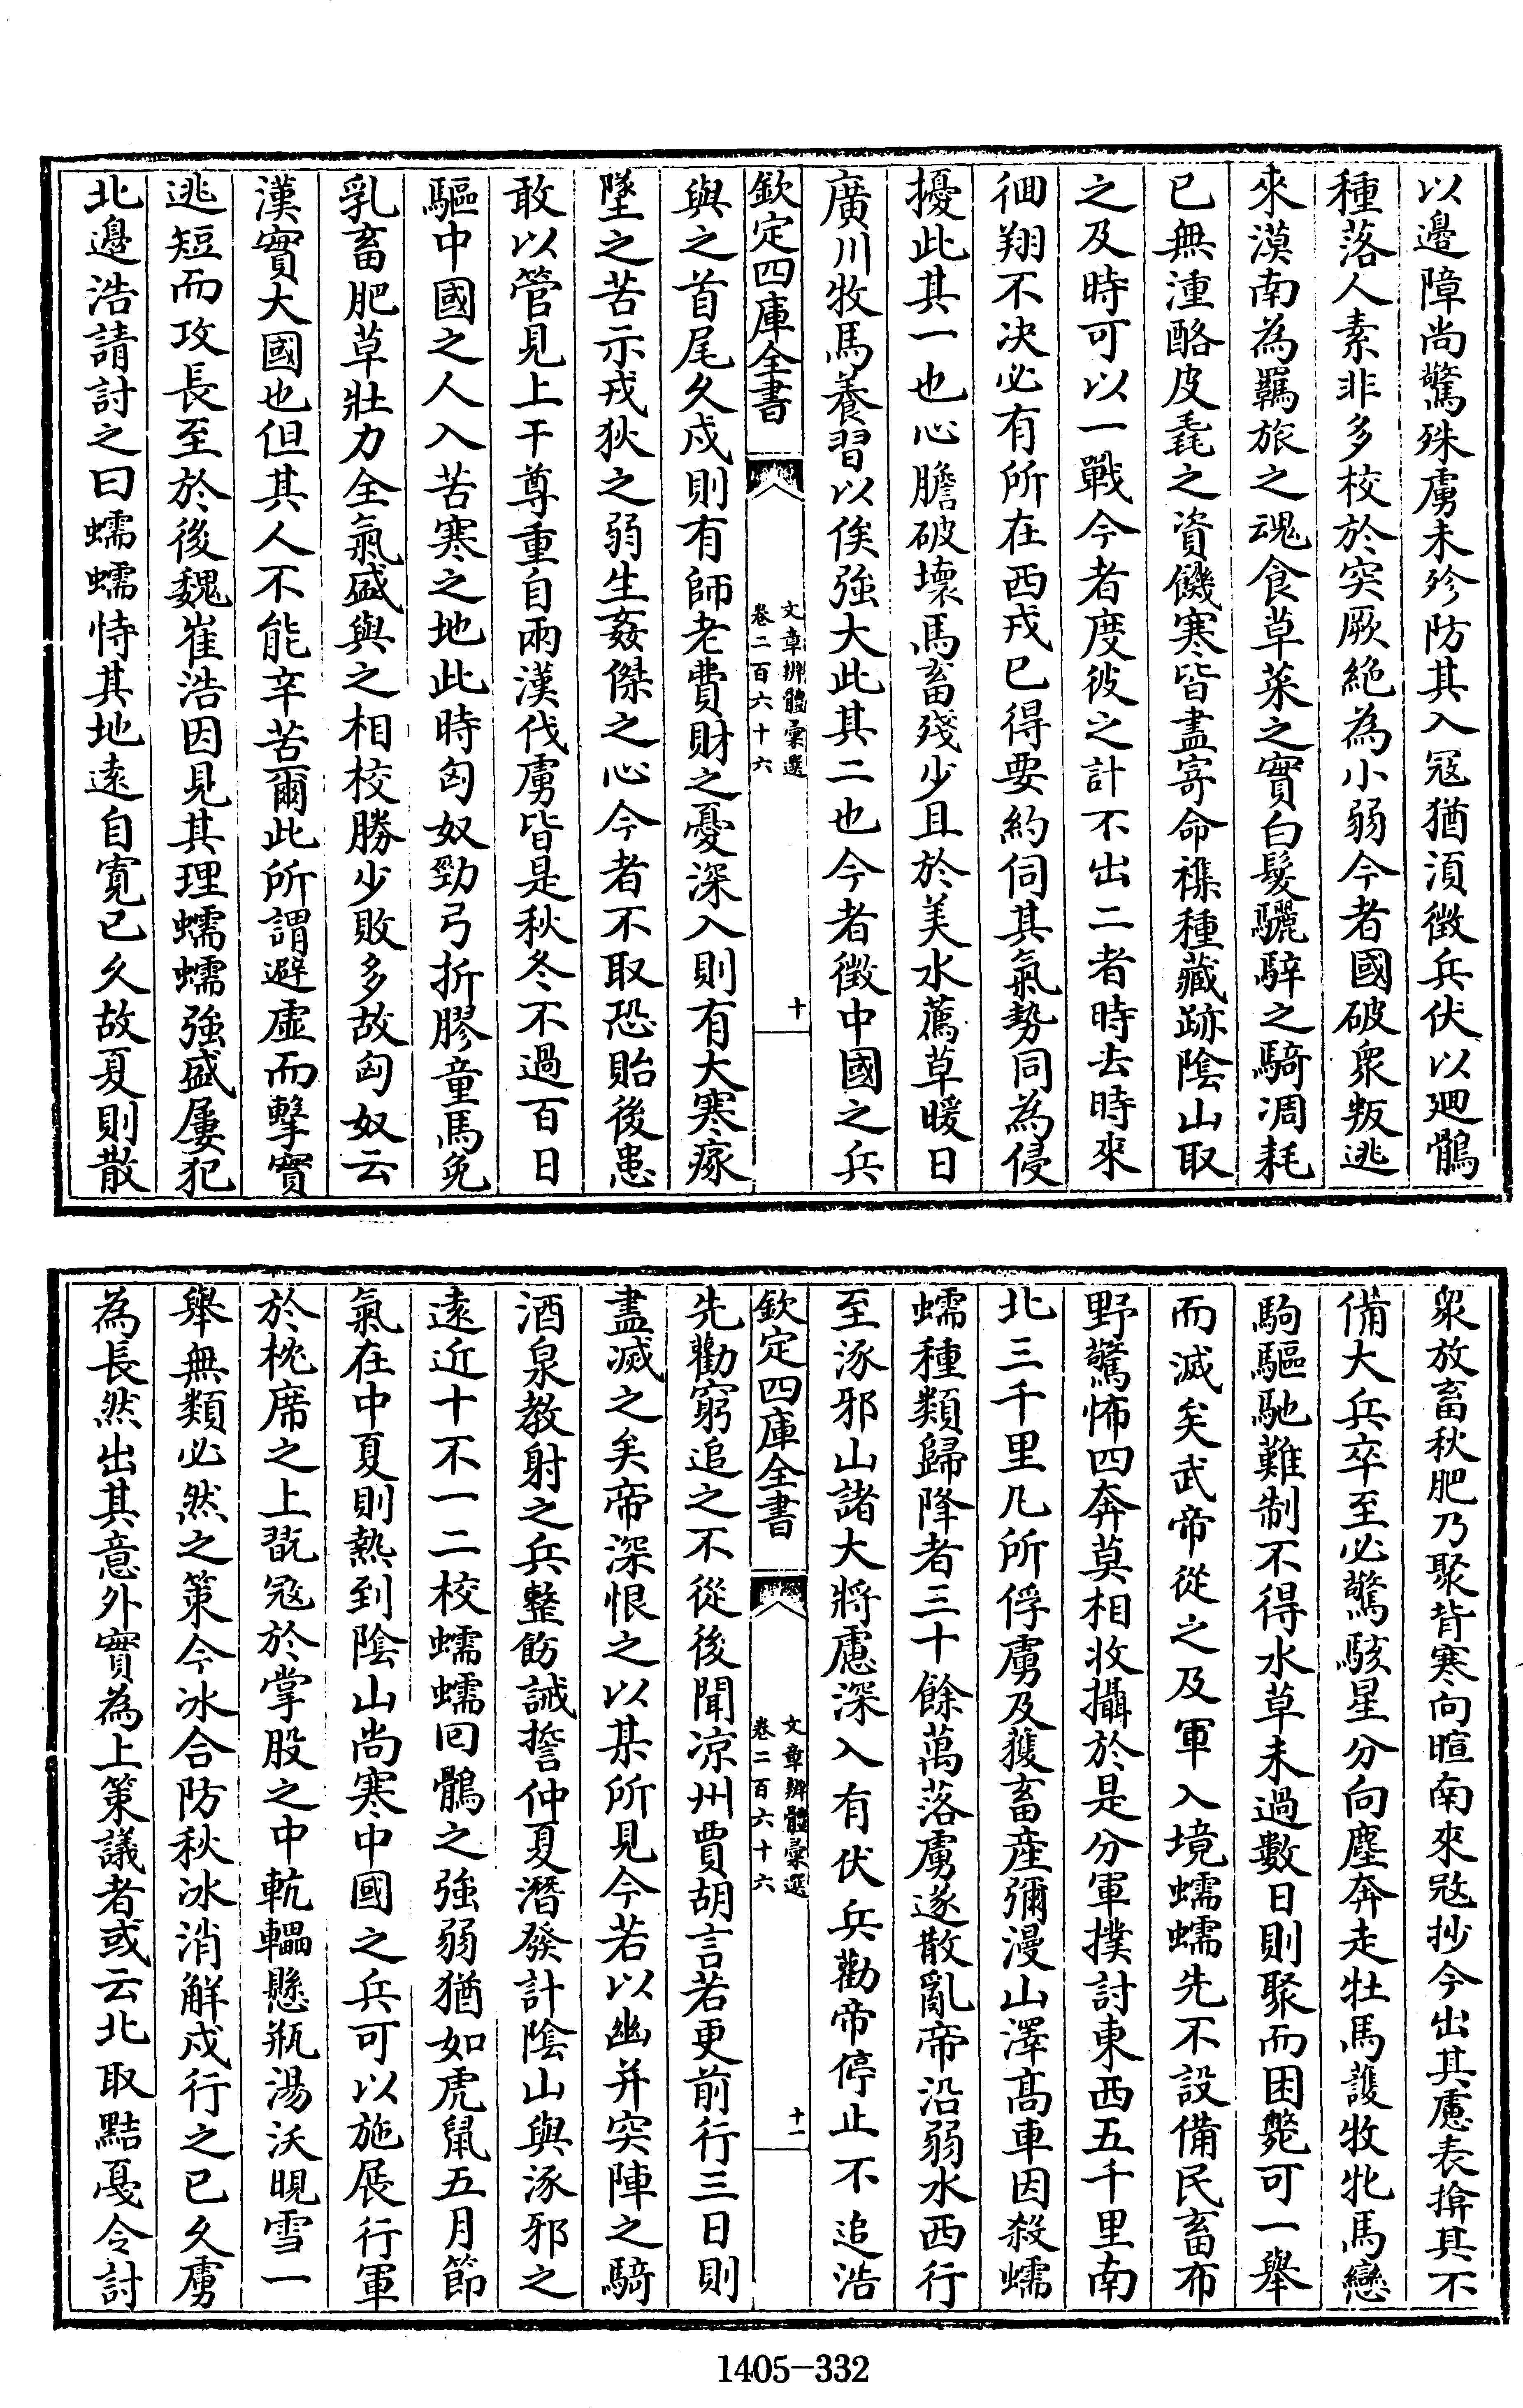 以邉障尚驚殊虜未殄防其入冦猶湏徴兵伏以廻鶻
種落人素非多校於突厥絶為小弱今者國破衆叛逃
來漠南為羈旅之魂食草菜之實白髮驪騂之騎凋耗
已無湩酪皮毳之資饑寒皆盡寄命襍種藏跡隂山取
之及時可以一戰今者度彼之計不出二者時去時來
徊翔不决必有所在西戎已得要約伺其氣勢同為侵
擾此其一也心膽破壞馬畜殘少且於美水薦草暖日
廣川牧馬養習以俟強大此其二也今者徴中國之兵
欽定四庫全書
文章辨體彚選
卷二百六十六
十
與之首尾久戍則有師老費財之憂深入則有大寒瘃
墜之苦示戎狄之弱生姦傑之心今者不取恐貽後患
敢以管見上干尊重自兩漢伐虜皆是秋冬不過百日
驅中國之人入苦寒之地此時匈奴勁弓折膠童馬免
乳畜肥草壯力全氣盛與之相校勝少敗多故匈奴云
漢實大國也但其人不能辛苦爾此所謂避虚而擊實
逃短而攻長至於後魏崔浩因見其理蠕蠕強盛屢犯
北邉浩請討之曰蠕蠕恃其地遠自寛已久故夏則散
衆放畜秋肥乃聚背寒向暄南來冦抄今出其慮表揜其不
備大兵卒至必驚駭星分向塵奔走牡馬護牧牝馬戀
駒驅馳難制不得水草未過數日則聚而困斃可一舉
而滅矣武帝從之及軍入境蠕蠕先不設備民畜布
野驚怖四奔莫相收攝於是分軍撲討東西五千里南
北三千里凡所俘虜及獲畜産彌漫山澤髙車因殺蠕
蠕種類歸降者三十餘萬落虜遂散亂帝沿弱水西行
至涿邪山諸大將慮深入有伏兵勸帝停止不追浩
欽定四庫全書
文章辨體彚選
卷二百六十六
十一
先勸窮追之不從後聞凉州賈胡言若更前行三日則
盡滅之矣帝深恨之以某所見今若以幽并突陣之騎
酒泉教射之兵整飭誡誓仲夏潛發計隂山與涿邪之
遠近十不一二校蠕蠕回鶻之強弱猶如虎䑕五月節
氣在中夏則熱到隂山尚寒中國之兵可以施展行軍
於枕席之上翫冦於掌股之中軏轠懸瓶湯沃晛雪一
舉無類必然之策今冰合防秋冰消解戍行之已久虜
為長然出其意外實為上策議者或云北取黠戞令討
1405-332